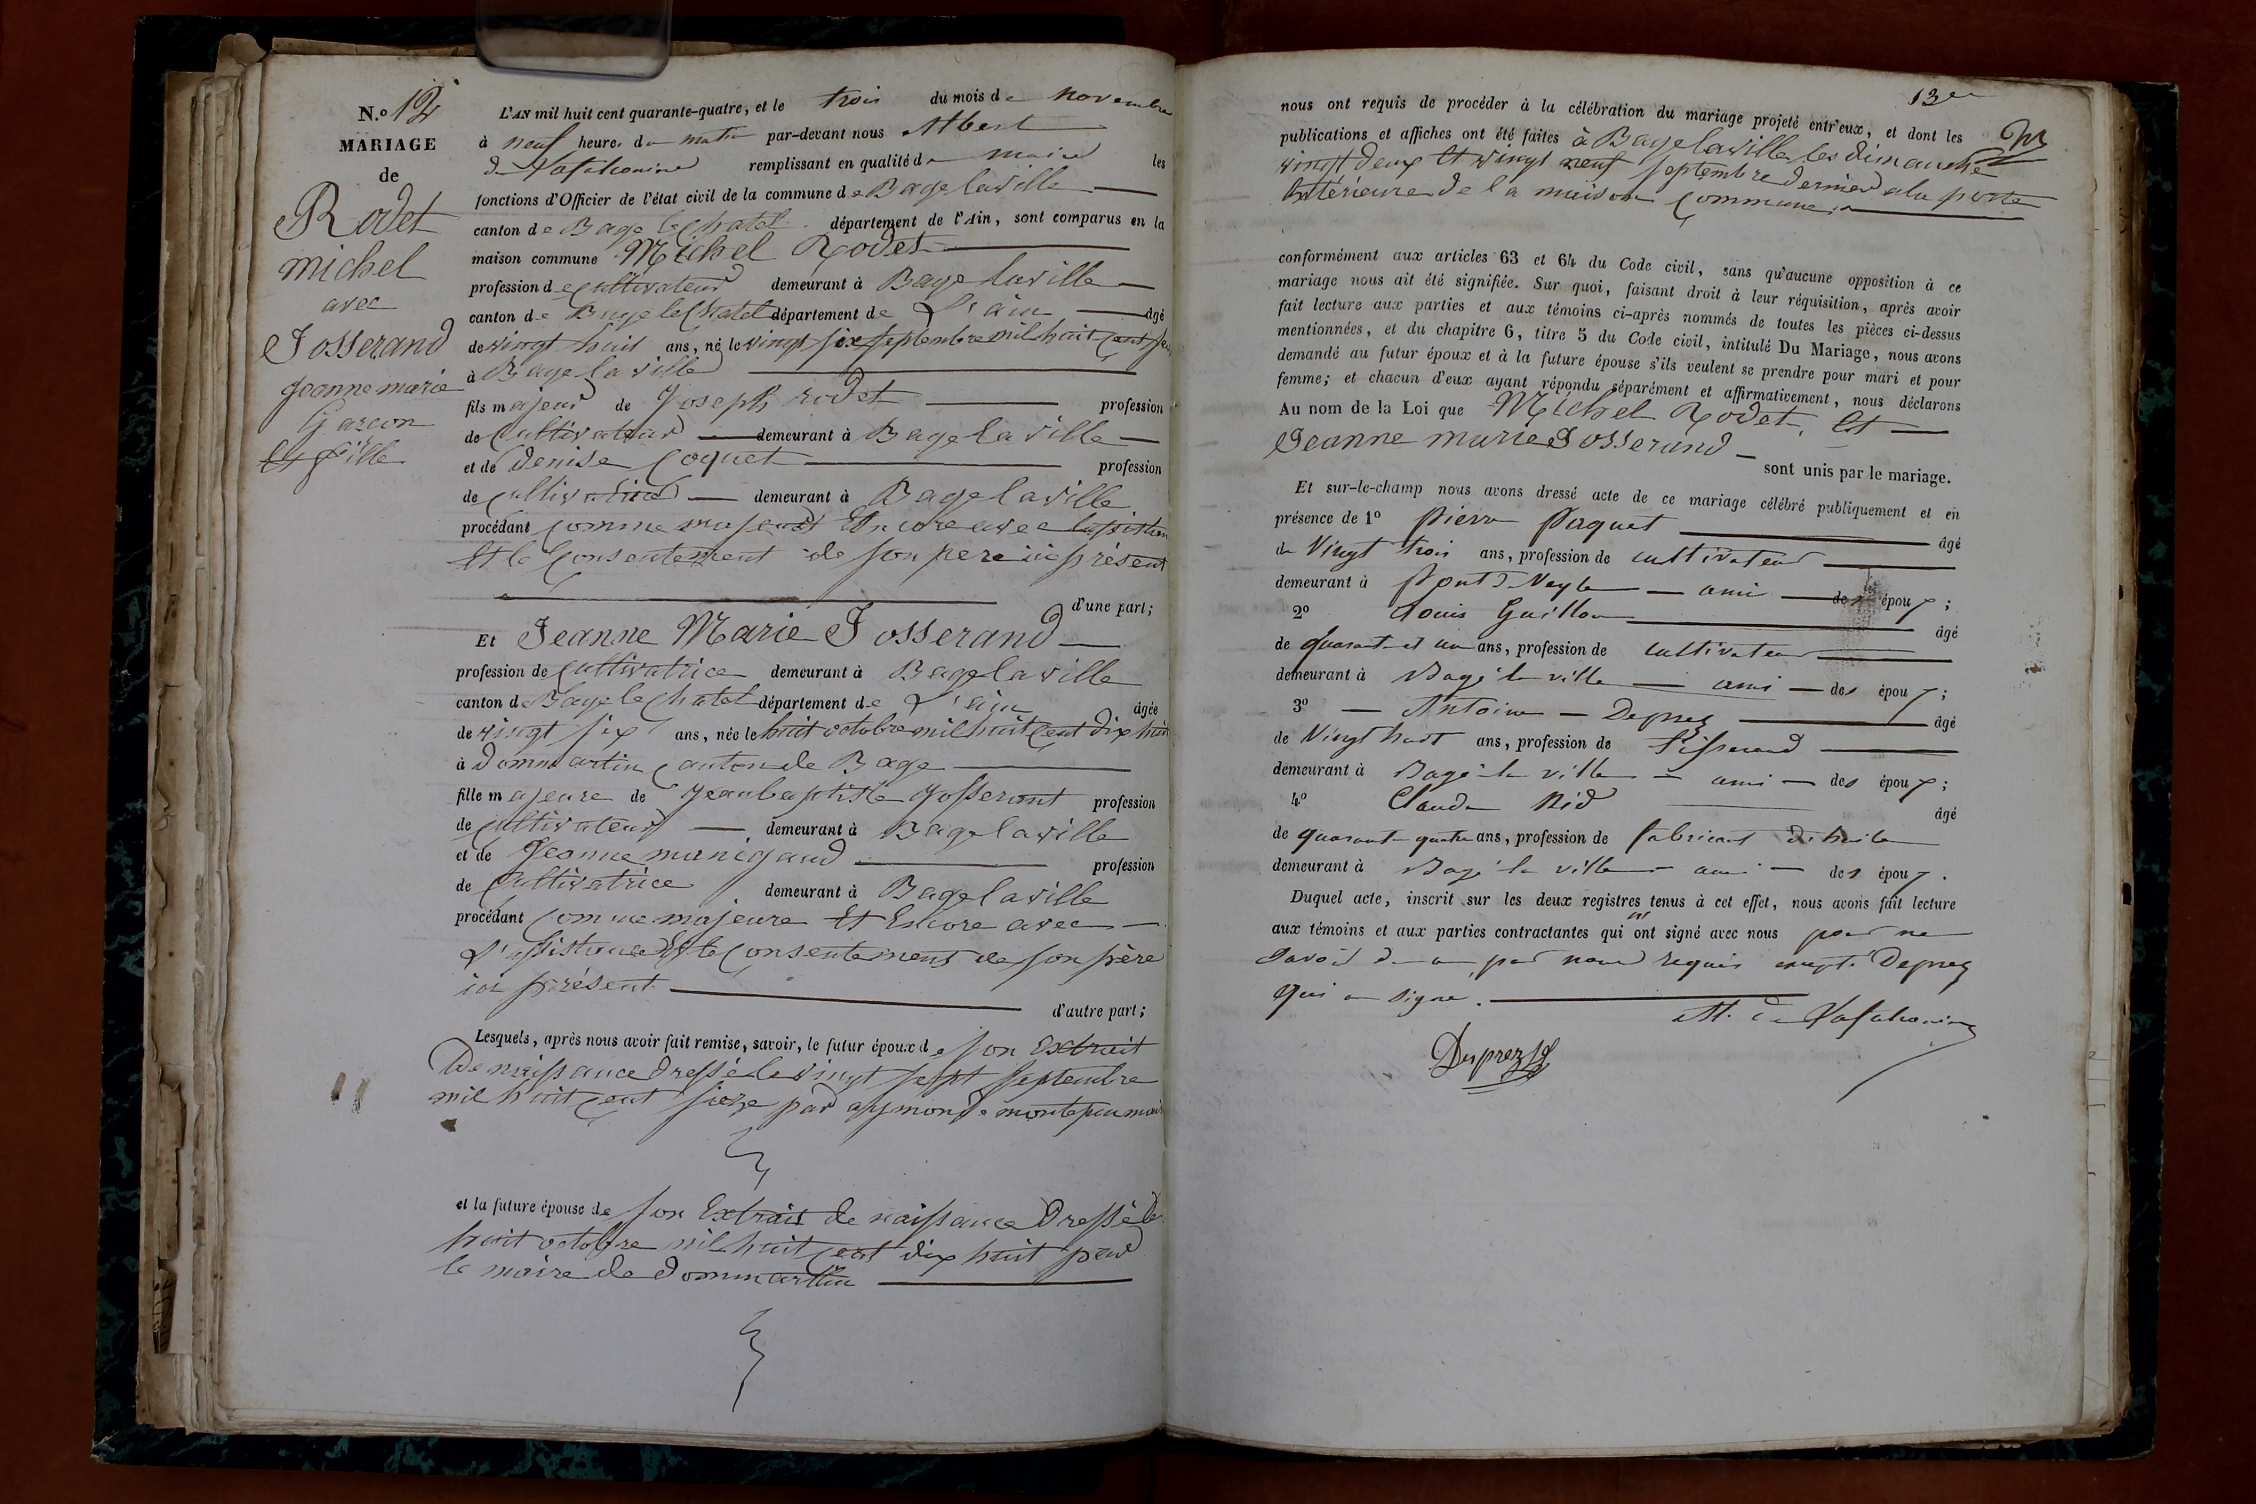 N.o 12
MARIAGE
de
Rodet
michel
avec
Josserand
jeanne marie
Garcon
Et fille
L'AN mil huit cent quarante-quatre, et le trois du mois de novembre
à neuf heures du matin par-devant nous Albert
remplissant en qualité de maire les
fonctions d'Officier de l'état civil de la commune de Bage laville
canton de Bage le Chatel département de l'Ain, sont comparus en la
maison commune Michel Rodet
profession de cultivateur demeurant à Bage laville
canton de Bage le Chatel département de L'ain âgé
de vingt huit ans, né le vingt six septembre mil huit Cent
à Bage laville
fils majeur de Joseph rodet profession
de Cultivateur demeurant à Bage laville
et de Denise Coquet profession
de demeurant à Bage laville
procédant Comme majeur Et Encore avec
Et le Consentement de son pere ici présent
d'une part;
Et Jeanne Marie Josserand
profession de Cultivatrice demeurant à Bage laville
canton de Bage le Chatel département de L'ain âgée
de vingt six ans, née le huit octobre mil huit Cent dix huit
à dommartin Canton de Bage
fille majeure de jean baptiste josserant profession
de Cultivateur demeurant à Bage laville
et de Jeanne manigaud profession
de Cultivatrice demeurant à Bage laville
procédant Comme majeure Et Encore avec
L'assistance Et le Consentement de son père
ici présent
d'autre part;
Lesquels, après nous avoir fait remise, savoir, le futur époux de son Extrait
De naissance Dressé le vingt sept septembre
mil huit cent sieze par
et la future épouse de son Extrait de naissance Dressé le
huit octobre mil huit cent dix huit par
le maire de dommartin
13
nous ont requis de procéder à la célébration du mariage projeté entr'eux, et dont les
publications et affiches ont été faites à Bage laville les dimanche
vingt deux Et vingt neuf septembre dernier a la porte
Extérieure de la maison Commune
conformément aux articles 63 et 64 du Code civil, sans qu'aucune opposition à ce
mariage nous ait été signifiée. Sur quoi, faisant droit à leur réquisition, après avoir
fait lecture aux parties et aux témoins ci-après nommés de toutes les pièces ci-dessus
mentionnées, et du chapitre 6, titre 5 du Code civil, intitulé Du Mariage, nous avons
demandé au futur époux et à la future épouse s'ils veulent se prendre pour mari et pour
femme; et chacun d'eux ayant répondu séparément et affirmativement, nous déclarons
Au nom de la Loi que Michel Rodet, Et
Jeanne marie Josserand
sont unis par le mariage.
Et sur-le-champ nous avons dressé acte de ce mariage célébré publiquement et en
présence de 1º Pierre Paquet âgé
de Vingt trois ans, profession de cultivateur
demeurant à Pont de Veyle ami des époux;
2º Louis Guillon âgé
de quarante et un ans, profession de cultivateur
demeurant à Bagé la ville ami des époux;
3º Antoine Deprez âgé
de Vingt huit ans, profession de Tisserand
demeurant à Bagé la ville ami des époux;
4º Claude âgé
de quarante quatre ans, profession de fabricant d'huile
demeurant à Bagé la ville ami des époux.
Duquel acte, inscrit sur les deux registres tenus à cet effet, nous avons fait lecture
aux témoins et aux parties contractantes qui n' ont signé avec nous pour ne
savoir de ce par nous requis excepté Deprez
qui a signé.
Desprez